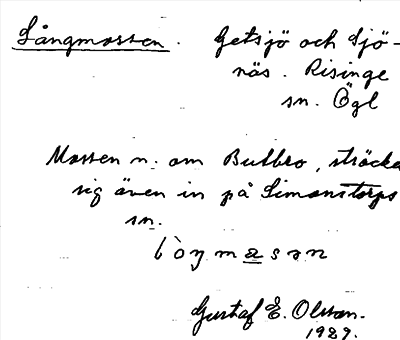 Långmossen. Getsjö och Sjö-
näs. Risinge
sn. Ögl
Mossen n. om Butbro, sträcka
sig även in på Simonstorps
sn.
lòŋmasən
Gustaf E. Olsson.
1929.